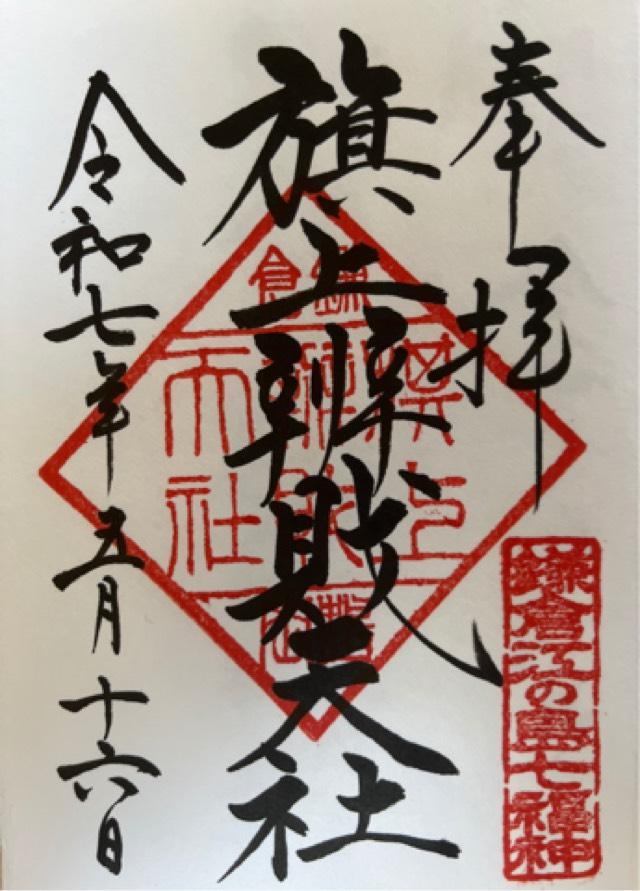 奉拝
鎌倉江の島七福神
旗上辨財天社
鎌倉
旗上
辨財
天社
令和七年五月十六日